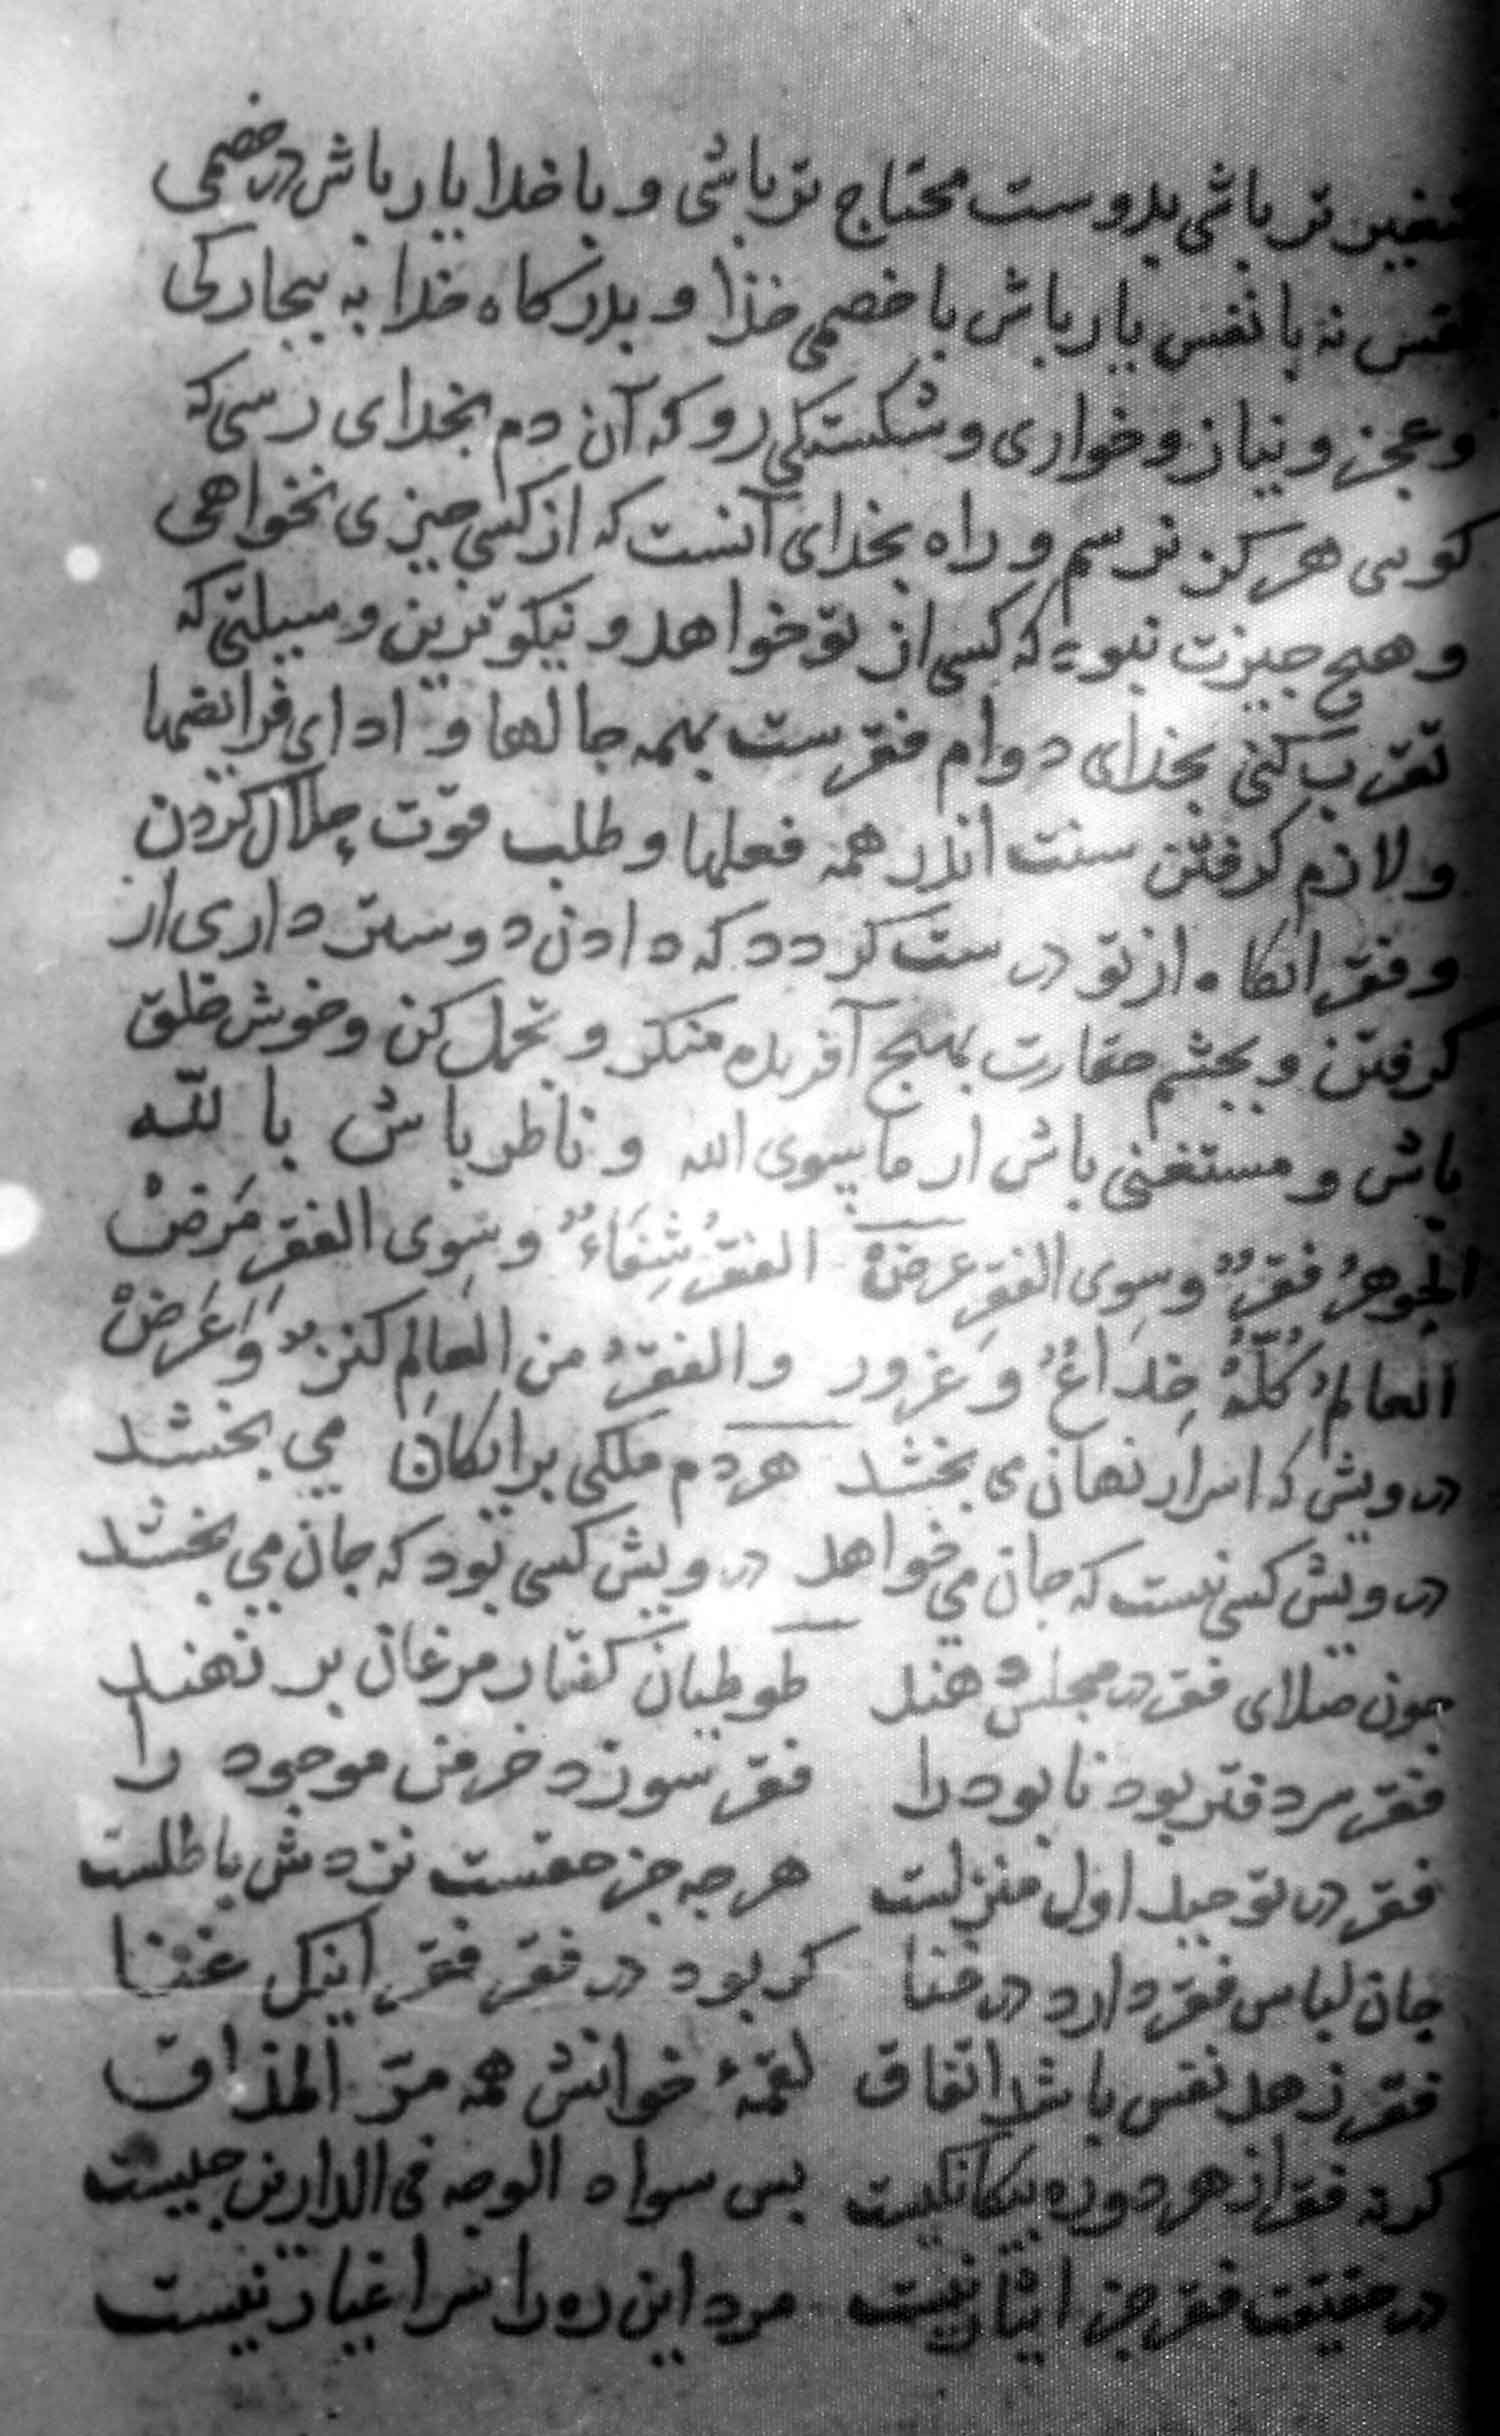 فقیرتر باشی بدوست محتاج تر باشی و با خدا یار باش در خصمی
نفس نه با نفس یار باش با خصمی خدا و بدرکاه خدا به بیچارکی
و عجز و نیاز و خواری و شکستکی رو که آن دم بخدای رسی که
کویی هرکز نرسم و راه بخدای آنست که از کسی چیزی نخواهی
و هیچ چیزت نبود که کسی از تو خواهد و نیکوترین وسیلتی که
تقرب کنی بخدای دوام فقرست بهمه حالها و ادای فرایضها
و لازم کرفتن سنت اندر همه فعلها و طلب قوت حلال کردن
و فقر انکاه از تو درست کردد که دادن دوستر داری از
کرفتن و بچشم حقارت بهیج آفریده منکر و تحمل کن و خوش خلق
باش و مستغنی باش از ما سوی الله و ناظر باش بالله
الجوهرُ فقرٌ وسِوی الفقرِ عرضْ الفقرُ شِفَاءٌ وسِوی الفقرِ مَرَضْ
العالمُ کُلّهُ خِداعٌ وغرور والفقرُ من العالِمِ کنزٌ وَغَرَضْ
درویش که اسرار نهان می بخشد هردم ملکی برایکان می بخشد
درویش کسی نیست که جان می خواهد درویش کسی بود که جان می بخشد
چون صلای فقر در مجلس دهند طوطیان کفتار مرغان بر نهند
فقر سردفتر بود نابود را فقر سوزد خرمن موجود را
فقر در توحید اول منزلست هر چه جز حقست نزدش باطلست
جان لباس فقر دارد در فنا کر بود در فقر فقر اینک غنا
فقر زهد نفس باشد اتفاق لقمهٔ خوانش همه مرّ المذاق
کر نه فقر از هر دو ره بیکانکیست بس سواد الوجه فی الدارین چیست
در حقیقت فقر جز ایثار نیست مرد این ره را سر اغیار نیست